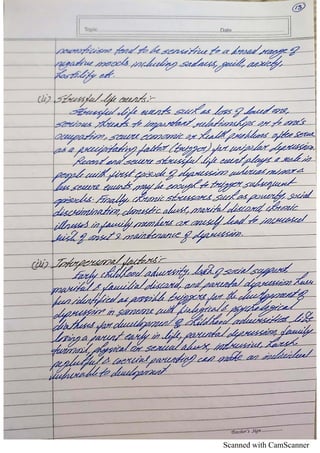 13
Topic Date
neuroticism tend to be sensitive to a broad range of
negative moods including sadness, guilt, anxiety
hostility etc.
(ii) Stressful life events:-
Stressful life events such as loss of loved one,
serious threats to important relationships or to one's
occupation, severe economic or health problems often serve
as a precipitating factor (trigger) for unipolar depression.
Recent and severe stressful life event plays a role in
people with first episode of depression whereas minor or
less severe events may be enough to trigger subsequent
episodes. Finally chronic stressors such as poverty, social
discrimination, domestic abuse, marital discord chronic
illnesses in family members or oneself lead to increased
risk of onset & maintenance of depression.
(iii) Interpersonal factors:-
Early childhood adversity, lack of social support
marital & familial discord, and parental depression have
been identified as possible triggers for the development of
depression in someone with biological & psychological
diathesis for development of childhood adversities like
losing a parent early in life, parental depression, family
turmoil, physical or sexual abuse, intrusive, harsh
& coercive parenting can make an individual
vulnerable to development
Teacher's Sign
Scanned with CamScanner